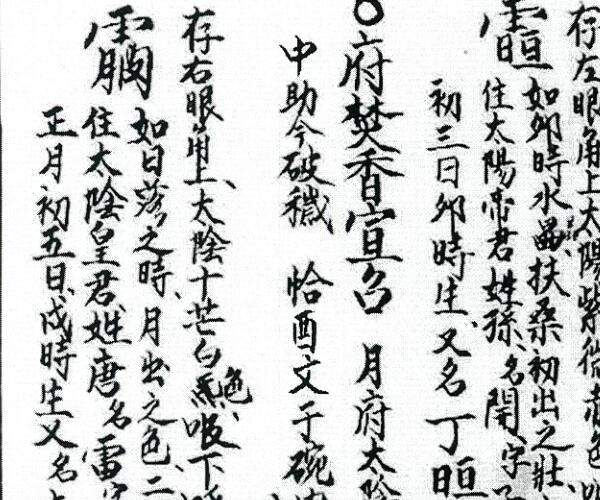 存左眼角上太陽紫微赤色
如卯時水晶扶桑初出之壯
䨻住太陽帝君姓孫名開字
初三日卯時生又名丁晅
府焚香宣召 月府太陰
中助今破穢 恰酉文于碗
存右眼角上太陰十芒白色吸下
如日落之時月出之色二
住太陰皇君姓唐名雷字
正月初五日戌時生又名